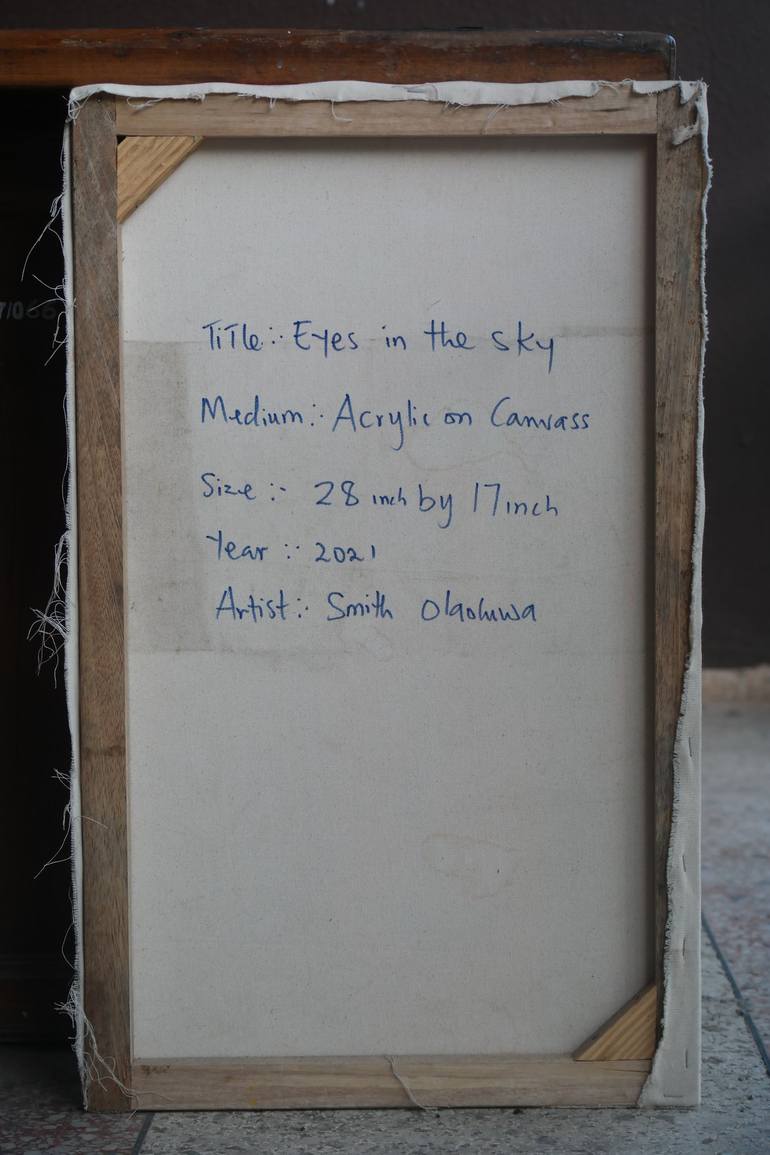 7/066
Title:- Eyes in the sky
Medium:- Acrylic on Canvass
Size:- 28 inch by 17 inch
Year:- 2021
Artist:- Smith Olaoluwa